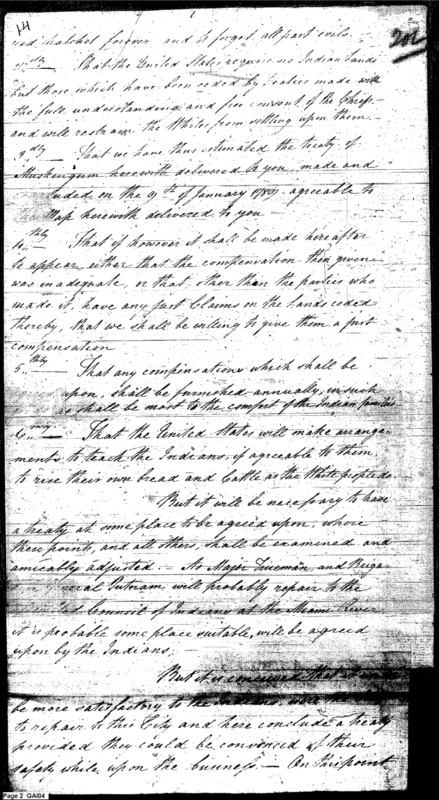 14
202
red hatchet forever and to forget all past evils.
2ndly — That the United States require no Indian Lands
but those which have been ceded by treaties made with
the full understanding and free consent of the Chiefs
and will restrain the Whites from settling upon them.—
3dly — That we have thus estimated the treaty of
Muskingum herewith delivered to you, made and
luded on the 9th of January 1789. agreeable to
Map herewith delivered to you
4thly — That if however it shall be made hereafter
to appear, either that the compensation then given
was inadequate, or that other than the parties who
made it, have any just Claims on the Lands ceded
thereby, that we shall be willing to give them a just
compensation
5thly — That any compensations which shall be
upon, shall be furnished annually, in such
as shall be most to the comfort of the Indian families
— That the United States will make arrange-
ments to teach the Indians, if agreeable to them,
to rise their own bread and Cattle as the White people do.
But it will be necessary to have
a treaty at some place to be agreed upon, where
these points, and all others, shall be examined and
amicably adjusted.— As Major Trueman, and Briga-
General Putnam will probably repair to the
Council of Indians at the Miami River
it is probable some place suitable, will be agreed
upon by the Indians.
But it is conceived that it
be more satisfactory to the Indians,
to repair to this City and here conclude a treaty
provided they could be convinced of their
safety while upon the business — On this point
Page 2 GAI04